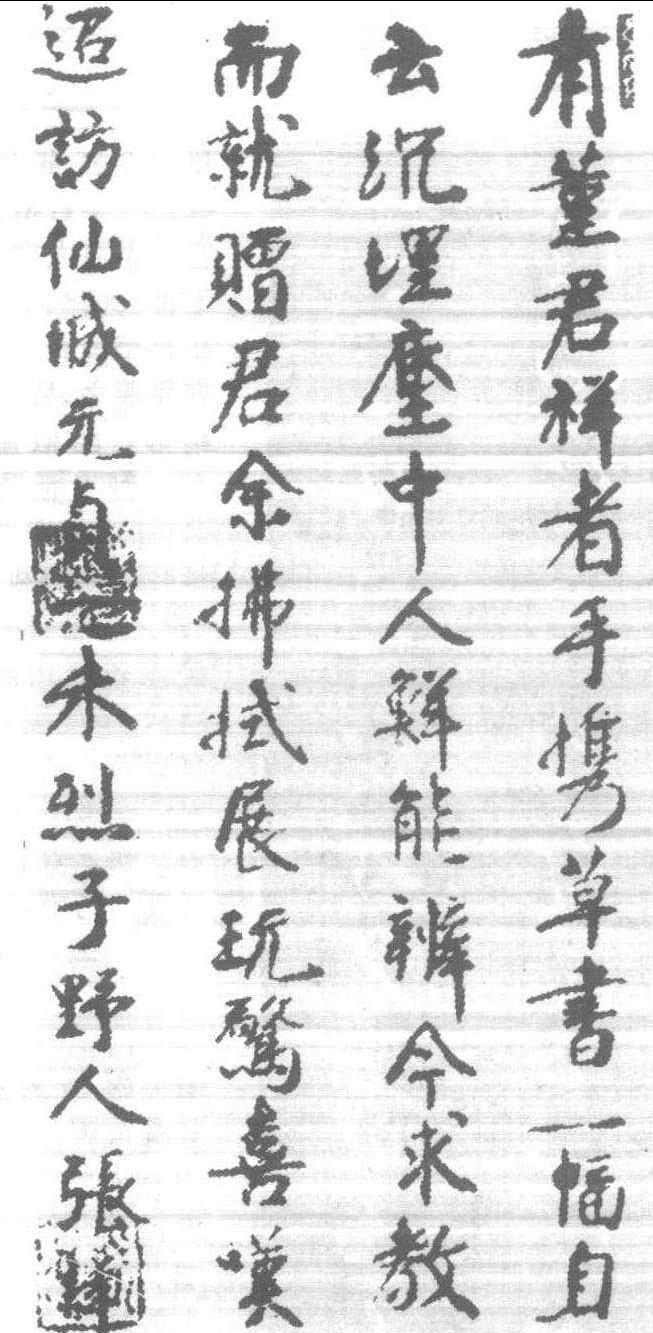 有董君祥者手携草書一幅自
云沉埋塵中人鮮能辨今求教
而就贈君余拂拭展玩驚喜嘆
迢訪仙城元貞乙未烈子野人張